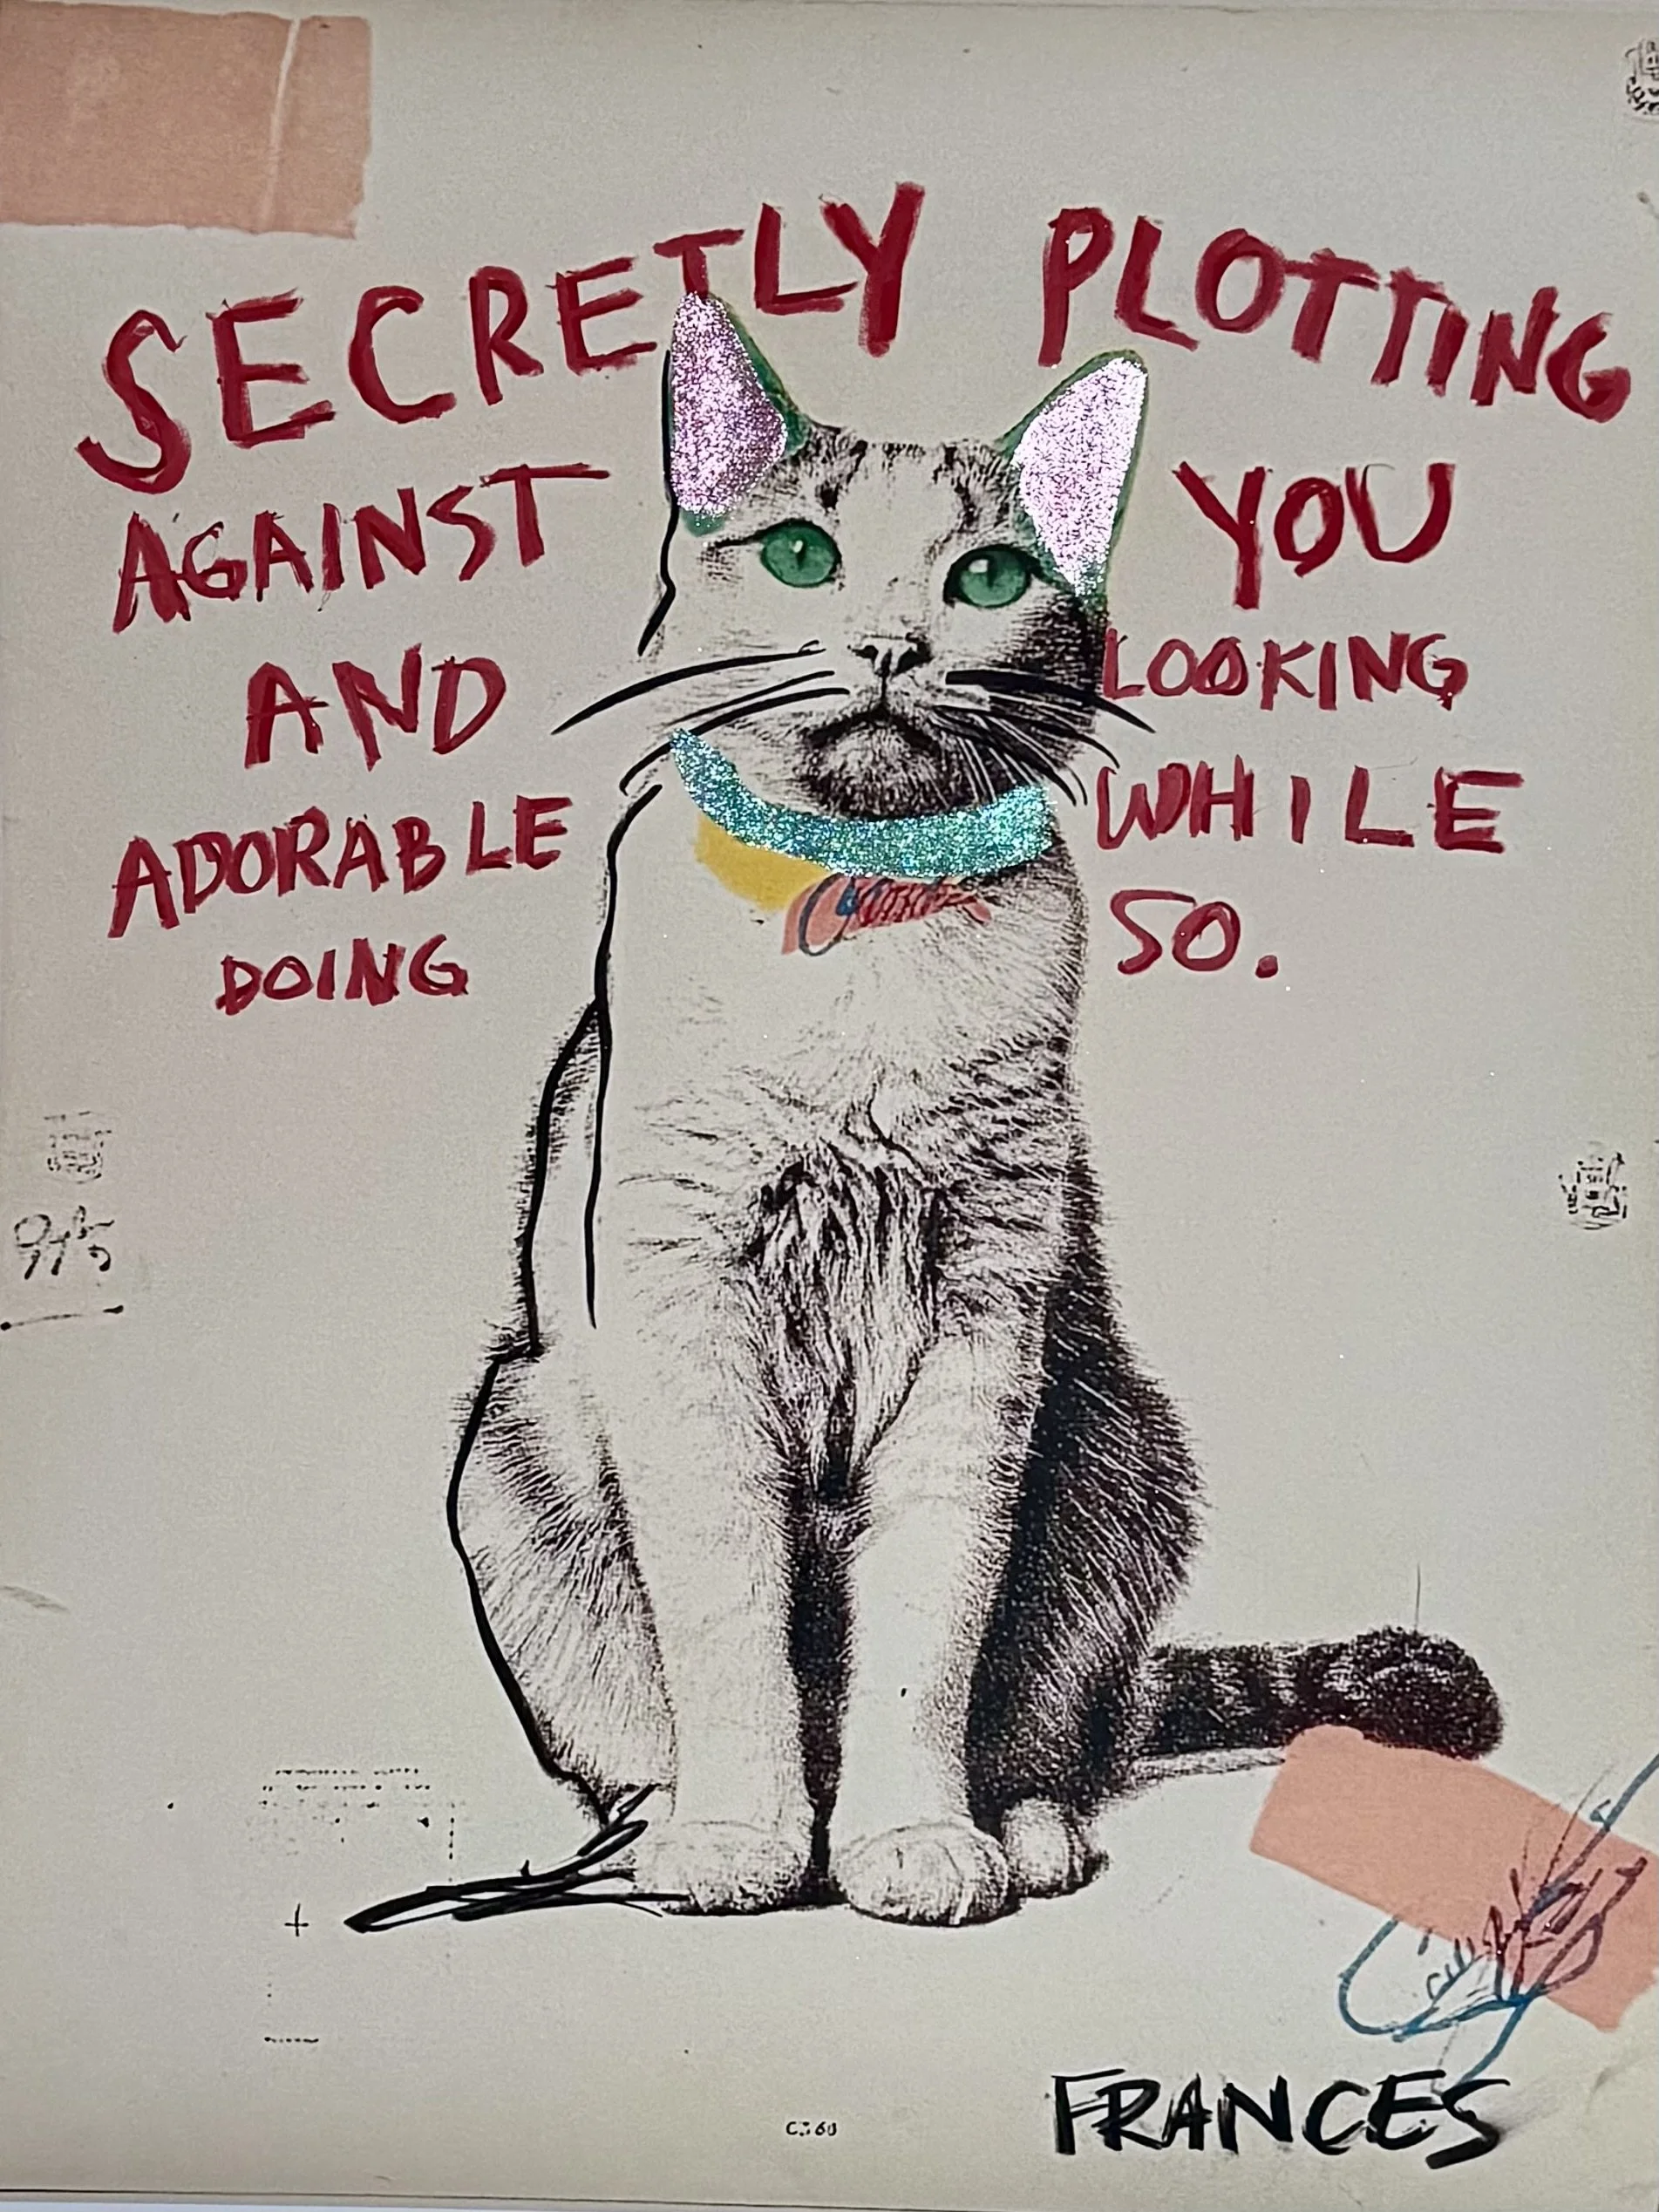 SECRETLY PLOTTING
AGAINST YOU
AND LOOKING
ADORABLE WHILE
DOING SO.
FRANCES